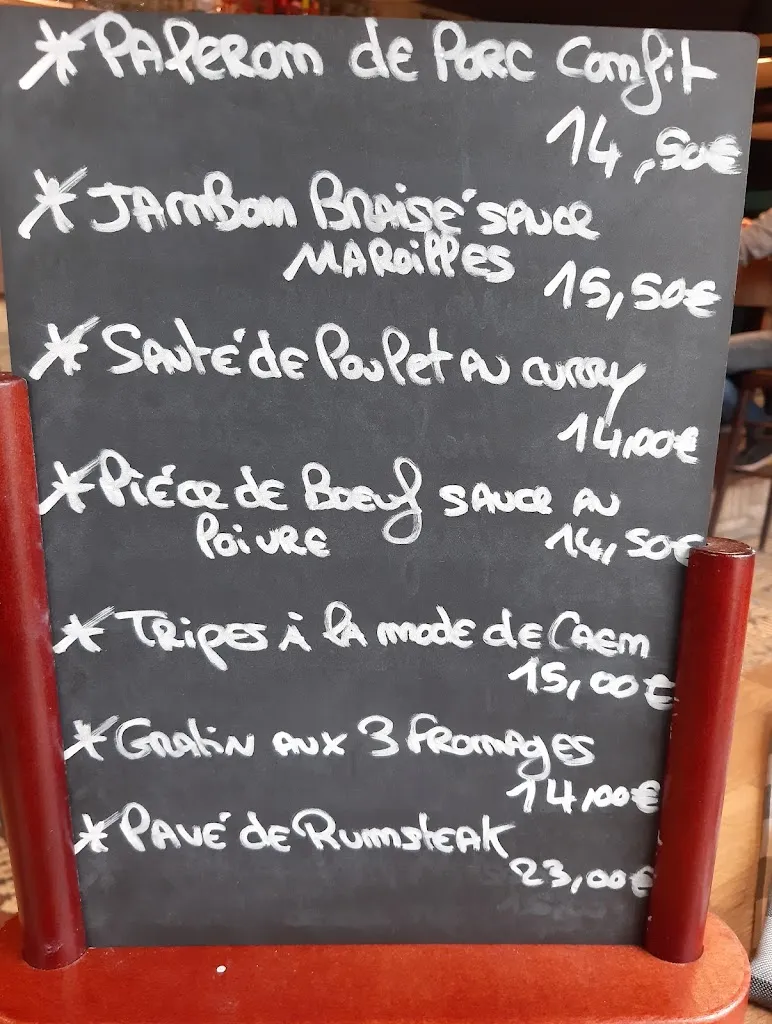 * Paleron de Porc Confit
14,50€
* Jambon Braisé sauce
Maroilles
15,50€
* Sauté de Poulet au curry
14,00€
* Pièce de Boeuf sauce au
Poivre
14,50€
* Tripes à la mode de Caen
15,00€
* Gratin aux 3 fromages
14,00€
* Pavé de Rumsteak
23,00€